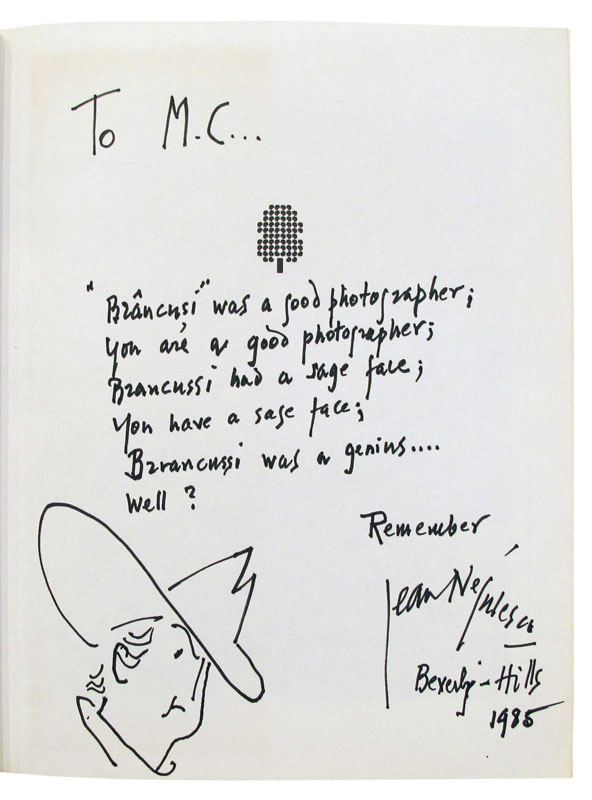 To M.C...
"Brâncusi" was a good photographer;
You are a good photographer;
Brancussi had a sage face;
You have a sage face;
Brrancussi was a genius....
Well ?
Remember
Jean Negulesco
Beverly-Hills
1985